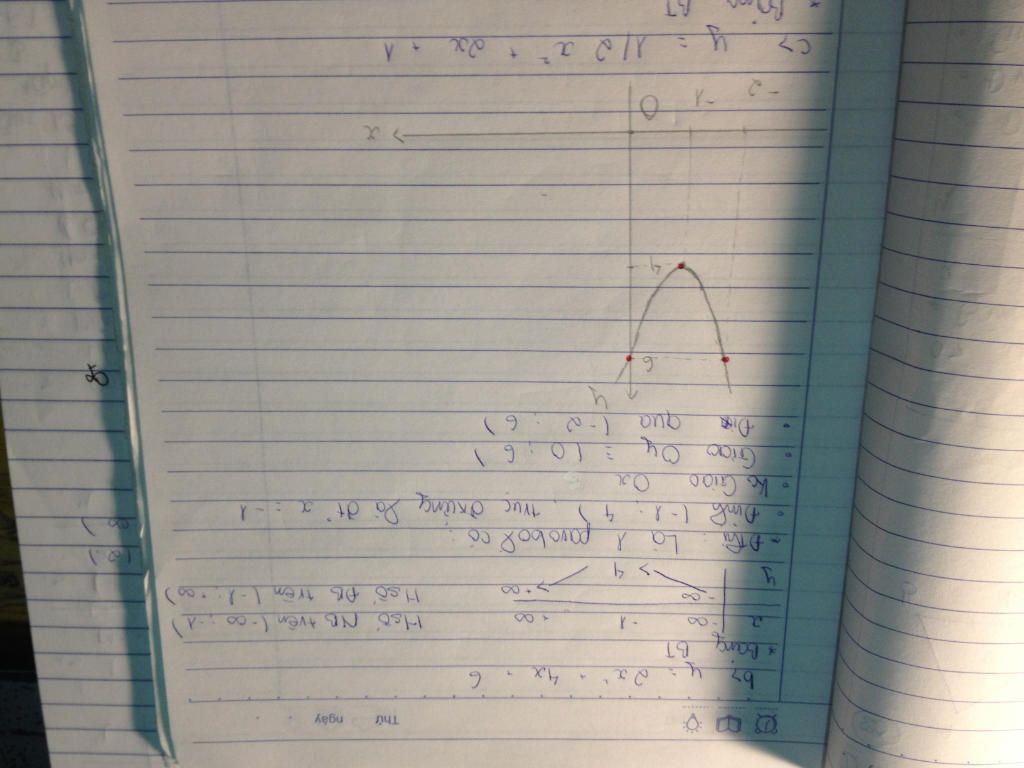 Thứ ngày
b> y = 2x² + 4x + 6
* Bảng BT
x -∞ -1 +∞ Hsố NB trên (-∞; -1)
y -∞ 4 +∞ Hsố ĐB trên (-1; +∞)
* Đthị: Là 1 parabol có:
• Đỉnh (-1; 4), trục đxứng là đt x = -1
• K Giao Ox
• Giao Oy = (0; 6)
• Đi qua (-2; 6)
y
6
4
x
O -1 -2
c> y = 1/2 x² + 2x + 1
* Bảng BT
∞)